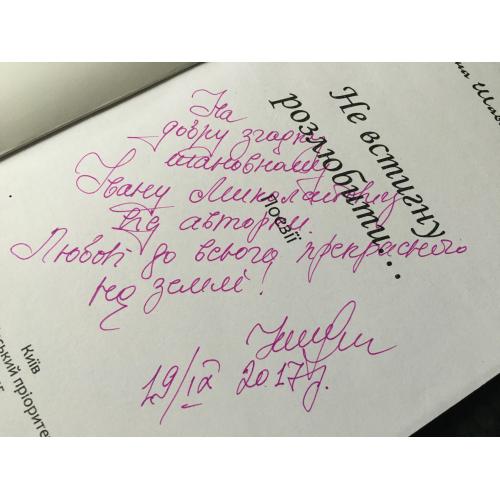 На
добру згадку
шановному
Івану Миколайовичу
від авторки.
Любові до всього прекрасного
на землі!
19/IX 2017 р.
Не встигну
розлюбити...
Поезії
Київ